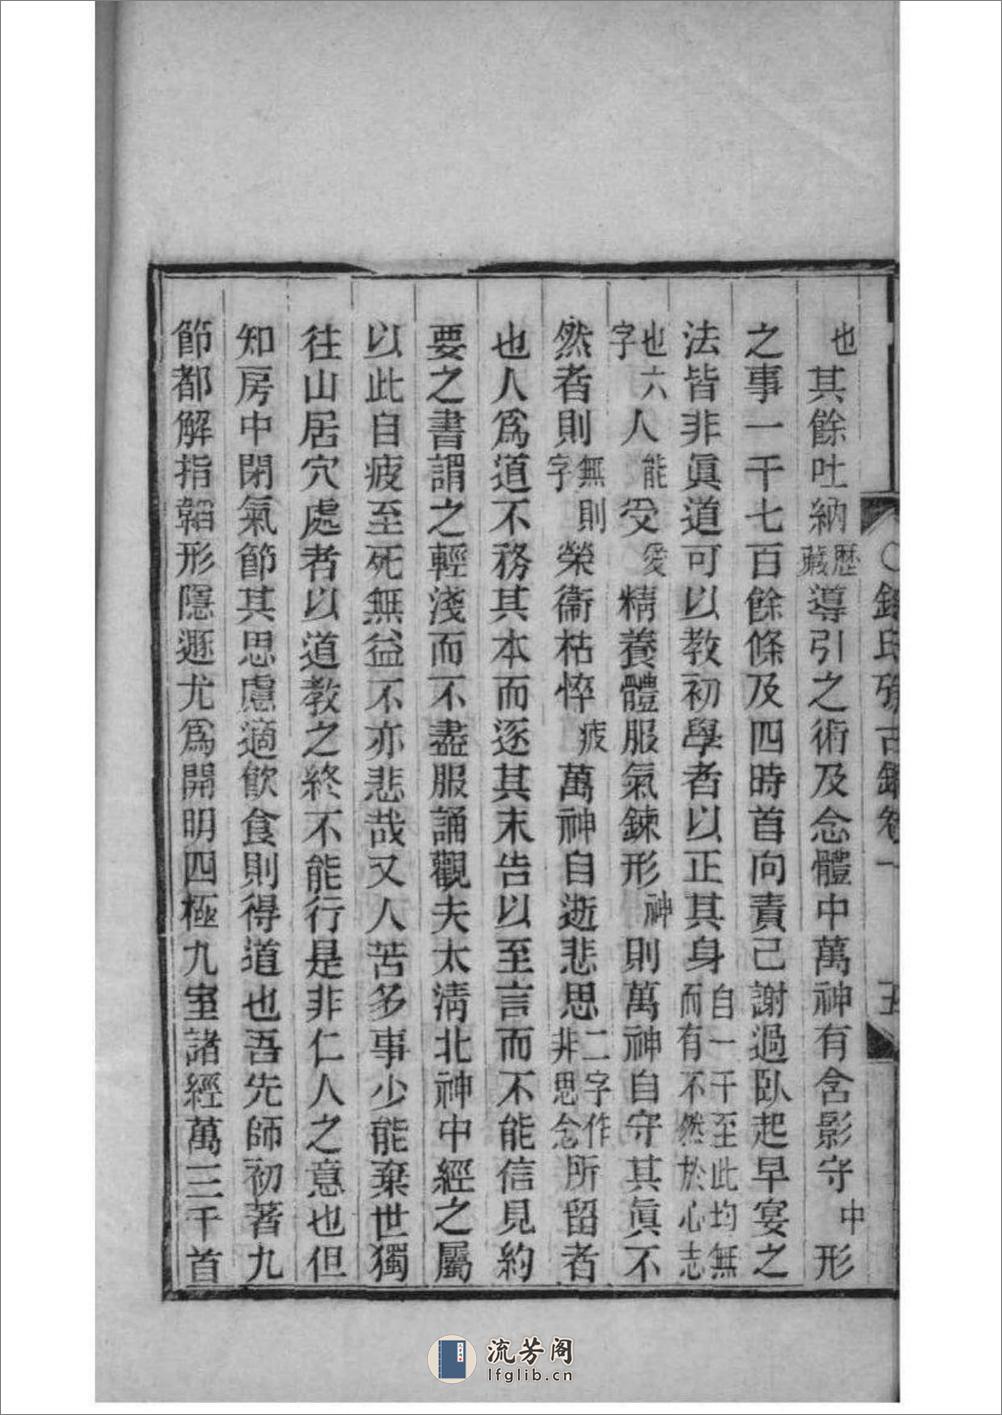 也其餘吐納歷藏導引之術及念體中萬神有含影守中形
之事一千七百餘條及四時首向責己謝過臥起早宴之
法皆非眞道可以教初學者以正其身自一千至此均無而有不然於心志
也六字人能受愛精養體服氣鍊形神則萬神自守其眞不
然者則無則字榮衞枯悴疲萬神自逝悲思二字作非思念所留者
也人爲道不務其本而逐其末告以至言而不能信見約
要之書謂之輕淺而不盡服誦觀夫太淸北神中經之屬
以此自疲至死無益不亦悲哉又人苦多事少能棄世獨
往山居穴處者以道教之終不能行是非仁人之意也但
知房中閉氣節其思慮適飮食則得道也吾先師初著九
節都解指韜形隱遯尤爲開明四極九室諸經萬三千首
流芳阁
lfglib.cn